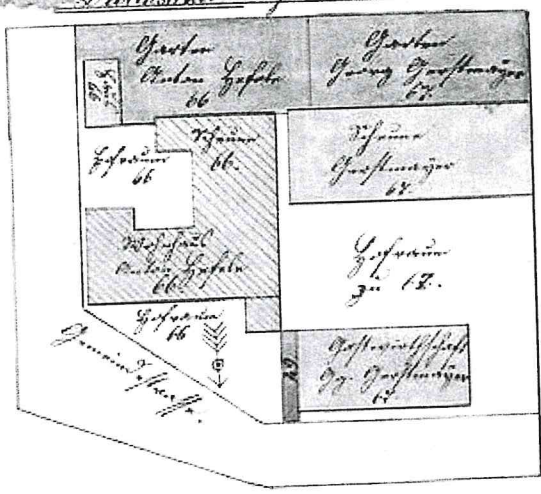 Garten
Anton Hefele
66
Garten
Georg Gerstmayer
67.
66
Scheune
66.
Hofraum
66
Scheune
Gerstmayer
67
Wohnhaus
Anton Hefele
66
Hofraum
zu 67.
Hofraum
66
Gemeindestraße.
Gastwirthschaft
Gg. Gerstmayer
67